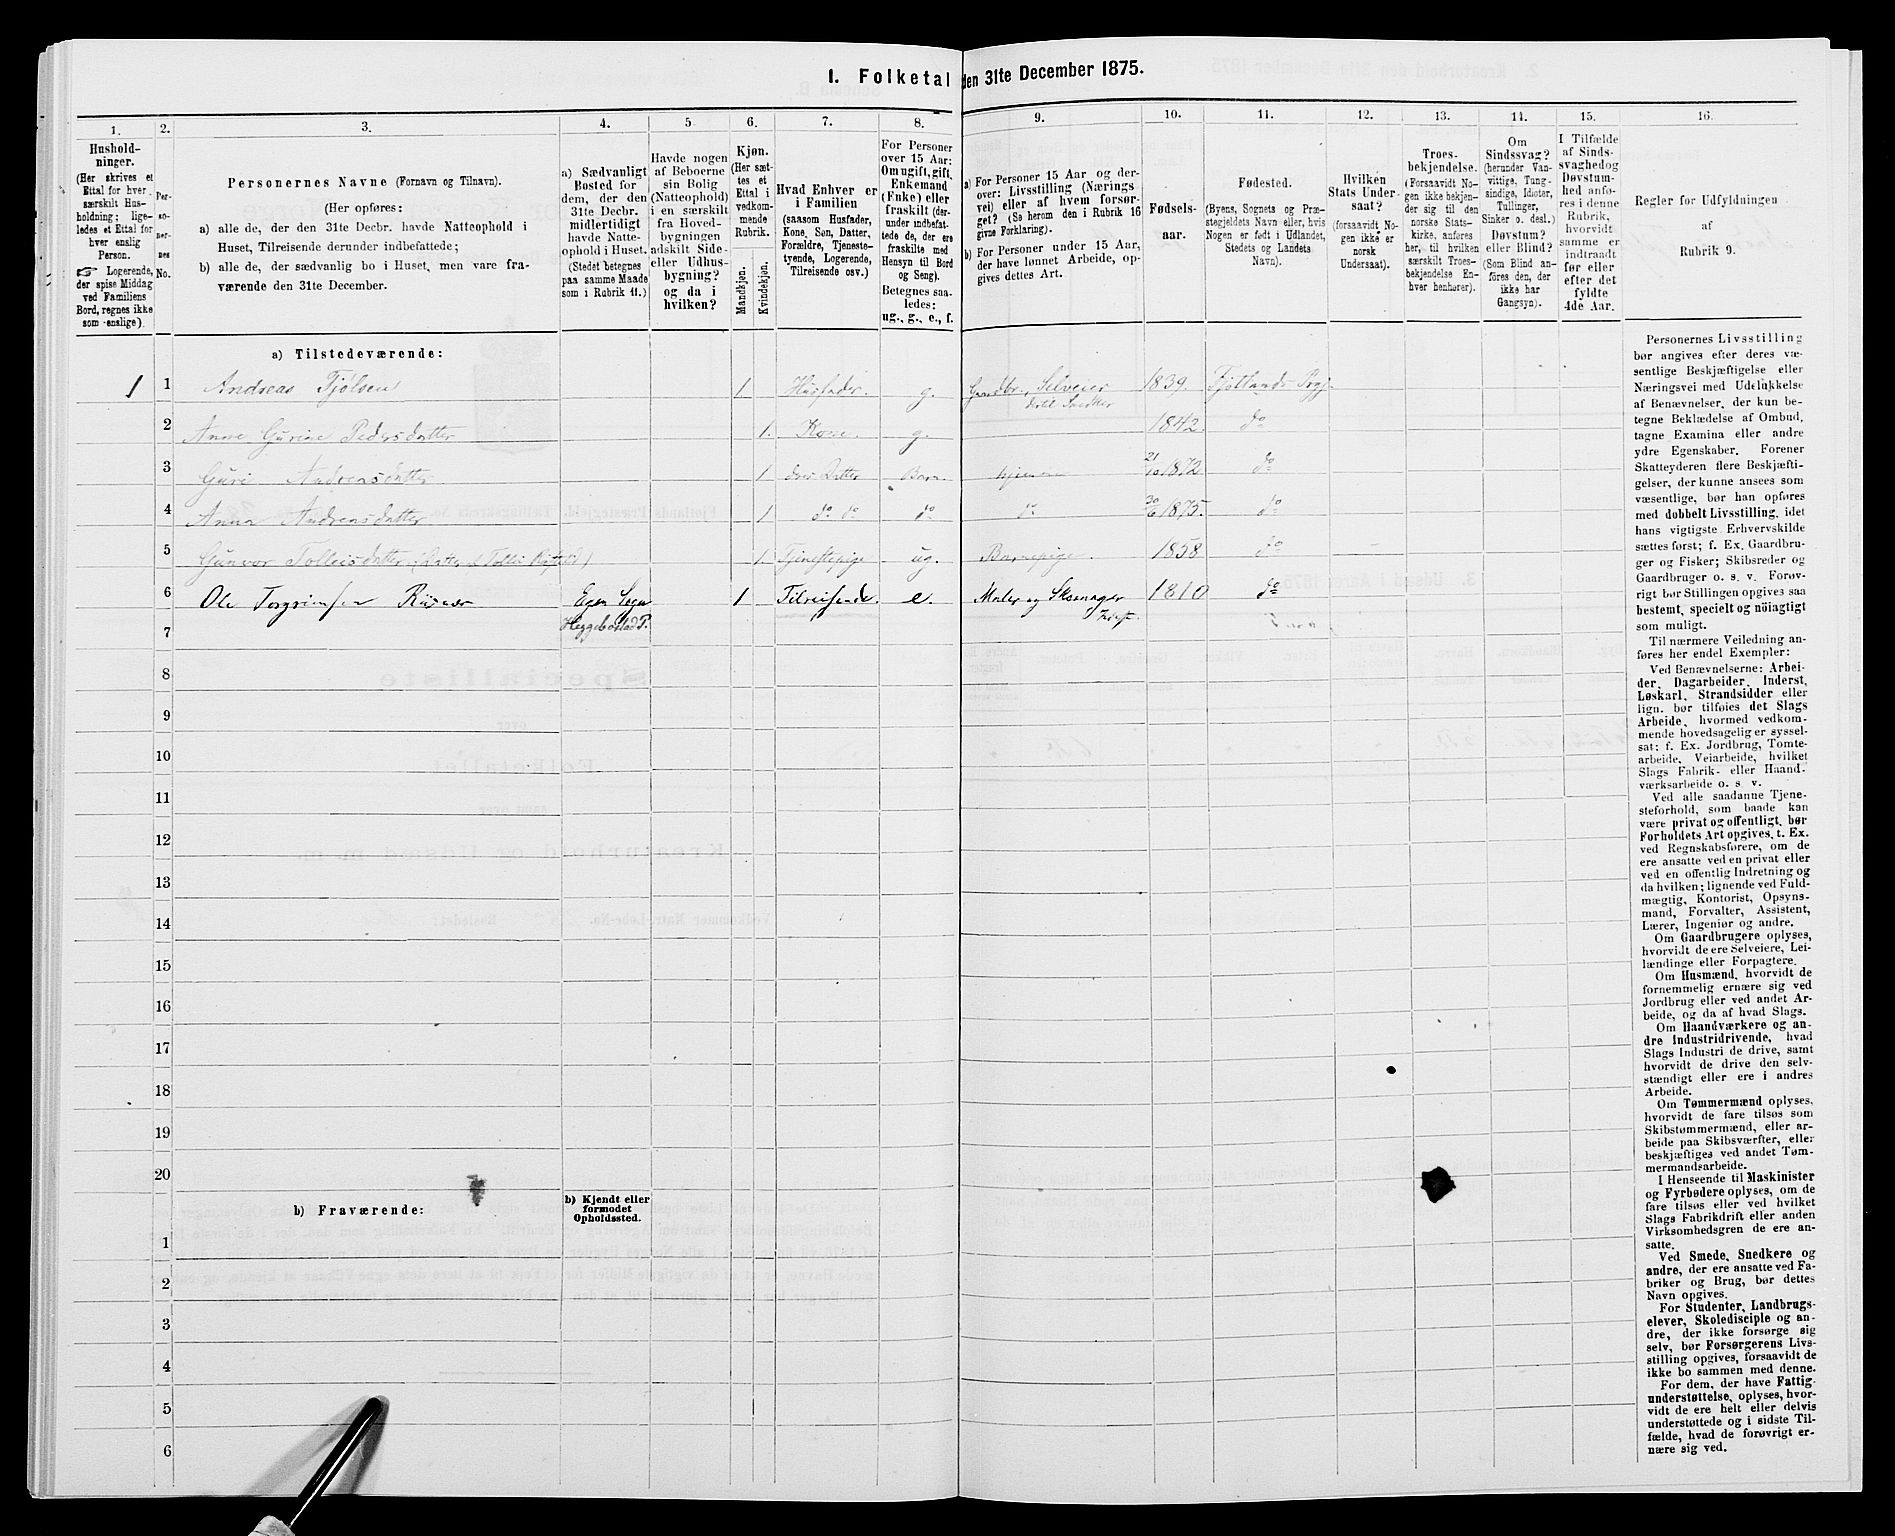 I. Folketal den 31te December 1875.
1. 2. 3. 4. 5. 6. 7. 8. 9. 10. 11. 12. 13. 14. 15. 16.
Hushold-
ninger.
(Her skrives et
Ettal for hver
særskilt Hus-
holdning; lige-
ledes et Ettal for
hver enslig
Person.
☞ Logerende,
der spise Middag
ved Familiens
Bord, regnes ikke
som enslige).
Per-
so-
ner-
nes
No.
Personernes Navne (Fornavn og Tilnavn).
(Her opføres:
a) alle de, der den 31te Decbr. havde Natteophold i
Huset, Tilreisende derunder indbefattede;
b) alle de, der sædvanlig bo i Huset, men vare fra-
værende den 31te December.
a) Sædvanligt
Bosted for
dem, der den
31te Decbr.
midlertidigt
havde Natte-
ophold i Huset.
(Stedet betegnes
paa samme Maade
som i Rubrik 11.)
Havde nogen
af Beboerne
sin Bolig
(Natteophold)
i en særskilt
fra Hoved-
bygningen
adskilt Side-
eller Udhus-
bygning?
og da i
hvilken?
Kjøn.
(Her sæt-
tes et
Ettal i
vedkom-
mende
Rubrik.
Mandkjøn.
Kvindekjøn.
Hvad Enhver er
i Familien
(saasom Husfader,
Kone, Søn, Datter,
Forældre, Tjeneste-
tyende, Logerende,
Tilreisende osv.)
For Personer
over 15 Aar:
Om ugift, gift,
Enkemand
(Enke) eller
fraskilt (der-
under indbefat-
tede de, der ere
fraskilte med
Hensyn til Bord
og Seng).
Betegnes saa-
ledes:
ug., g., e., f.
a) For Personer 15 Aar og der-
over: Livsstilling (Nærings
vei) eller af hvem forsør-
get? (Se herom den i Rubrik 16
givne Forklaring).
b) For Personer under 15 Aar,
der have lønnet Arbeide, op-
gives dettes Art.
Fødsels-
aar.
Fødested.
(Byens, Sognets og Præ-
stegjeldets Navn eller, hvis
Nogen er født i Udlandet,
Stedets og Landets
Navn).
Hvilken
Stats Under-
saat?
(forsaavidt No-
gen ikke er
norsk
Undersaat).
Troes-
bekjendelse.
(Forsaavidt No-
gen ikke bekjen-
der sig til den
norske Stats-
kirke, anføres
her, til hvilken
særskilt Troes-
bekjendelse En-
hver henhører).
Om
Sindssvag?
(herunder Van-
vittige, Tung-
sindige, Idioter,
Tullinger,
Sinker o. desl.)
Døvstum?
eller Blind?
(Som Blind an-
føres den, der
ikke har
Gangsyn).
I Tilfælde
af Sinds-
svaghed og
Døvstum-
hed anfø-
res i denne
Rubrik,
hvorvidt
samme er
indtraadt
før eller
efter det
fyldte
4de Aar.
Regler for Udfyldningen
af
Rubrik 9.
a) Tilstedeværende:
1 1 Andreas Tjølsen 1 Husfader. g. Gaardbr., Selveier dertil Snedker 1839. Fjotlands Prgj.
2 Anne Gurine Pedersdatter 1. Kone. g. 1842. do
3 Guri Andreasdatter 1 deres Datter Barn hjemme 21/10 1872 do
4 Anna Andreasdatter 1 do do do do 30/6 1875. do
5 Gunvor Tolleisdatter 1. Tjenestepige ug. Barnepige. 1858 do
6 Ole Torgrimsen Heggebostad P. 1 Tilreisende. e. Maler og Skomager 1810 do
7
8
9
10
11
12
13
14
15
16
17
18
19
20
b) Fraværende:
b) Kjendt eller
formodet
Opholdssted.
1
2
3
4
5
6
Personernes Livsstilling
bør angives efter deres væ-
sentlige Beskjæftigelse eller
Næringsvei med Udelukkelse
af Benævnelser, der kun be-
tegne Beklædelse af Ombud,
tagne Examina eller andre
ydre Egenskaber. Forener
Skatteyderen flere Beskjæfti-
gelser, der kunne ansees som
væsentlige, bør han opføres
med dobbelt Livsstilling, idet
hans vigtigste Erhvervskilde
sættes først; f. Ex. Gaardbru-
ger og Fisker; Skibsreder og
Gaardbruger o. s. v. Forøv-
rigt bør Stillingen opgives saa
bestemt, specielt og nøiagtigt
som muligt.
Til nærmere Veiledning an-
føres her endel Exempler:
Ved Benævnelserne: Arbei-
der, Dagarbeider, Inderst,
Løskarl, Strandsidder eller
lign. bør tilføies det Slags
Arbeide, hvormed vedkom-
mende hovedsagelig er syssel-
sat; f. Ex. Jordbrug, Tomte-
arbeide, Veiarbeide, hvilket
Slags Fabrik- eller Haand-
værksarbeide o. s. v.
Ved alle saadanne Tjene-
steforhold, som baade kan
være privat og offentligt, bør
Forholdets Art opgives, t. Ex.
ved Regnskabsførere, om de
ere ansatte ved en privat eller
ved en offentlig Indretning og
da hvilken; lignende ved Fuld-
mægtig, Kontorist, Opsyns-
mand, Forvalter, Assistent,
Lærer, Ingeniør og andre.
Om Gaardbrugere oplyses,
hvorvidt de ere Selveiere, Lei-
lændinge eller Forpagtere.
Om Husmænd, hvorvidt de
fornemmelig ernære sig ved
Jordbrug eller ved andet Ar-
beide, og da af hvad Slags.
Om Haandværkere og an-
dre Industridrivende, hvad
Slags Industri de drive, samt
hvorvidt de drive den selv-
stændigt eller ere i andres
Arbeide.
Om Tømmermænd oplyses,
hvorvidt de fare tilsøs som
Skibstømmermænd, eller ar-
beide paa Skibsværfter, eller
beskjæftiges ved andet Tøm-
mermandsarbeide.
I Henseende til Maskinister
og Fyrbødere oplyses, om de
fare tilsøs eller ved hvilket
Slags Fabrikdrift eller anden
Virksomhedsgren de ere an-
satte.
Ved Smede, Snedkere og
andre, der ere ansatte ved Fa-
briker og Brug, bør dettes
Navn opgives.
For Studenter, Landbrugs-
elever, Skoledisciple og an-
dre, der ikke forsørge sig
selv, bør Forsørgerens Livs-
stilling opgives, forsaavidt de
ikke bo sammen med denne.
For dem, der have Fattig-
understøttelse, oplyses, hvor-
vidt de ere helt eller delvis
understøttede og i sidste Til-
fælde, hvad de forøvrigt er-
nære sig ved.